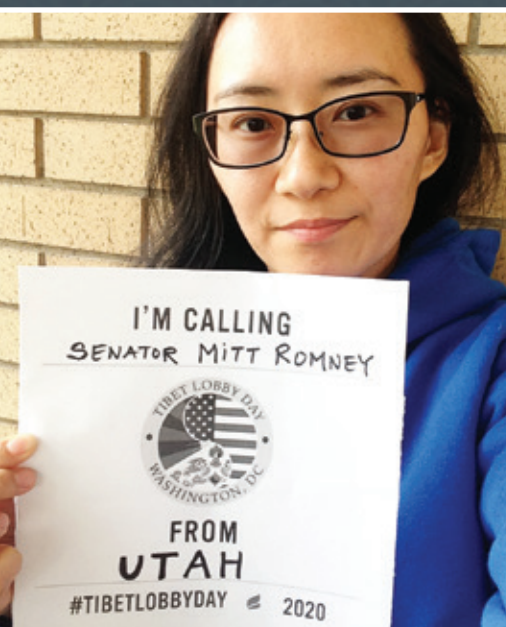 I'M CALLING
SENATOR MITT ROMNEY
TIBET LOBBY DAY
WASHINGTON, DC
FROM
UTAH
#TIBETLOBBYDAY 2020